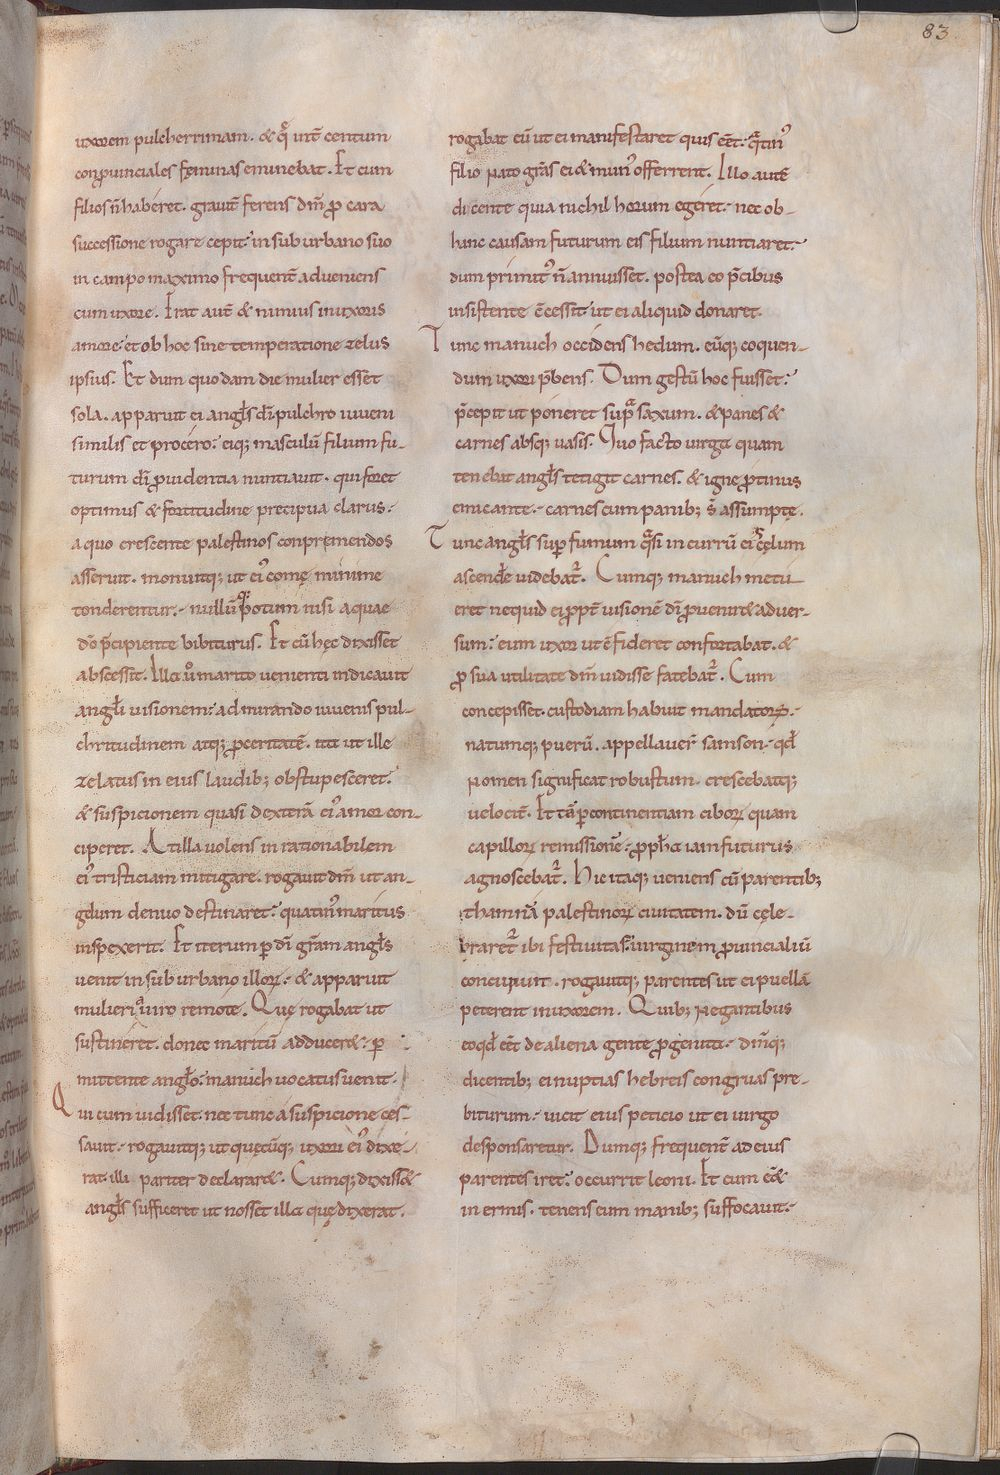 83
uxorem pulcherrimam. & q̃ int̄ centum
conprouinciales feminas eminebat. Et cum
filios n̄ haberet. grauit̄ ferens dm̄ ꝓ cara
successione rogare cepit: in suburbano suo
in campo maximo frequent̄ adueniens
cum uxore. Erat aut̄ & nimius in uxoris
amore: et ob hoc sine temperatione zelus
ipsius. Et dum quodam die mulier esset
sola. apparuit ei angl̄s dī pulchro iuueni
similis et procero: eiq; masculū filium fu-
turum dī ꝓuidentia nuntiauit. qui foret
optimus & fortitudine precipua clarus:
a quo crescente palestinos conpremendos
asseruit. monuitq; ut ei' comę minime
tonderentur: nullūq; potum nisi aquae
dō p̄cipiente bibiturus. Et cū hęc dixisset
abscessit. Illa ū marito uenienti indicauit
angl̄i uisionem: admirando iuuenis pul-
chritudinem atq; ꝓceritatē. ita ut ille
zelatus in eius laudib; obstupesceret:
& suspicionem quasi dexterā ei' amor con-
ciperet. At illa uolens inrationabilem
ei' tristiciam mitigare. rogauit dm̄ ut an-
gelum denuo destinaret: quatin' maritus
inspexerit. Et iterum ꝑ dī gr̄am angl̄s
uenit in suburbano illoꝝ: & apparuit
mulieri a uiro remote. Quę rogabat ut
sustineret. donec maritū adducer&: ꝑ
mittente angl̄o: manuch uocatus uenit.
Qui cum uidisset: nec tunc a suspicione ces-
sauit: rogauitq; ut quęcūq; uxori ei' dixe-
rat illi pariter declarar&. Cumq; dixiss&
angl̄s sufficeret ut nosset illa quę dixerat.
rogabat eū ut ei manifestaret quis eēt: q̄tin'
filio nato grās ei & mun' offerrent. Illo autē
dicente quia nichil horum egeret: nec ob-
hanc causam futurum eis filium nuntiaret:
dum primit' n̄ annuisset. postea eo p̄cibus
insistente c̄cessit: ut ei aliquid donaret.
Tunc manuch occidens hedum. eūq; coquen-
dum uxori p̄bens. Dum gestū hoc fuisset:
p̄cepit ut poneret suꝑ saxum. & panes &
carnes absq; uasis. Quo facto uirga quam
tenebat angl̄s tetigit carnes. & igne ꝓtinus
emicante: carnes cum panib; s̄ assumptę.
Tunc angl̄s suꝑ fumum q̄si in currū ei' cęlum
ascend̄e uidebat̄. Cumq; manuch metu-
eret ne quid ei ꝓpt̄ uisionē dī ꝓuenir& aduer-
sum: eum uxor ut c̄fideret confortabat. &
ꝓ sua utilitate dm̄ uidisse fatebat̄. Cum
concepisset. custodiam habuit mandatoꝝ:
natumq; puerū. appellauer̄ samson: qd̄
nomen significat robustum. crescebatq;
uelocit̄. Et tā ꝑ continentiam ciboꝝ quam
capilloꝝ remissionē: ꝓph̄a iam futurus
agnoscebat̄. Hic itaq; ueniens cū parentib;
thamnā palestinoꝝ ciuitatem. dū cęle-
braret̄ ibi festiuitas: uirginem ꝓuincialiū
concupiuit. rogauitq; parentes ut ei puellā
peterent in uxorem. Quib; negantibus
eo qd̄ eēt de aliena gente ꝓgenita: dm̄q;
dicentib; ei nuptias hebreis congruas pre-
biturum: uicit eius peticio ut ei uirgo
desponsaretur. Dumq; frequent̄ ad eius
parentes iret: occurrit leoni. Et cum eē&
inermis. tenens eum manib; suffocauit: